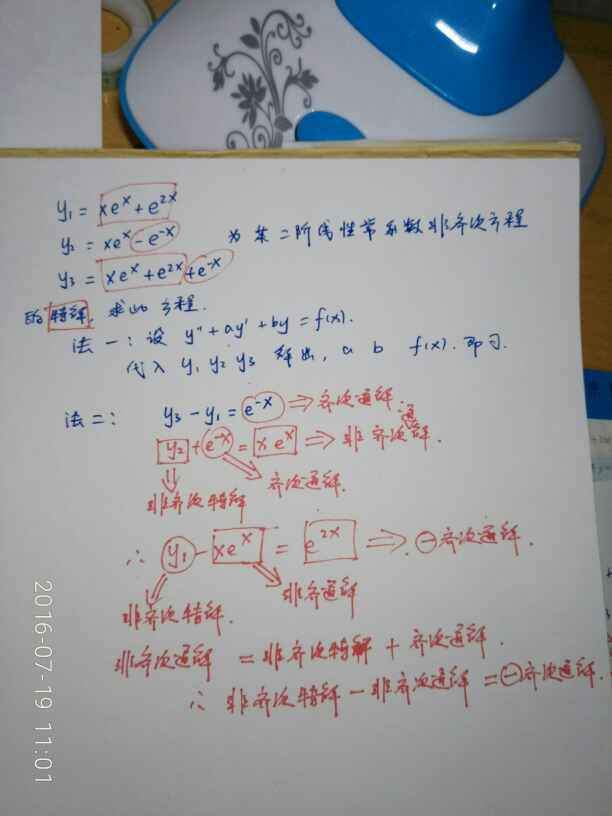 y₁ = xeˣ + e²ˣ
y₂ = xeˣ - e⁻ˣ 为某二阶线性常系数非齐次方程
y₃ = xeˣ + e²ˣ + e⁻ˣ
的特解, 求此方程.
法一: 设 y'' + ay' + by = f(x).
代入 y₁ y₂ y₃ 解出, a b f(x). 即可.
法二: y₃ - y₁ = e⁻ˣ ⇒ 齐次通解
通
y₂ + e⁻ˣ = x eˣ ⇒ 非齐次解.
非齐次特解 齐次通解.
∴ y₁ - xeˣ = e²ˣ ⇒ ⊖齐次通解.
非齐次特解. 非齐通解
非齐次通解 = 非齐次特解 + 齐次通解.
∴ 非齐次特解 - 非齐次通解 = ⊖齐次通解.
2016-07-19 11:01